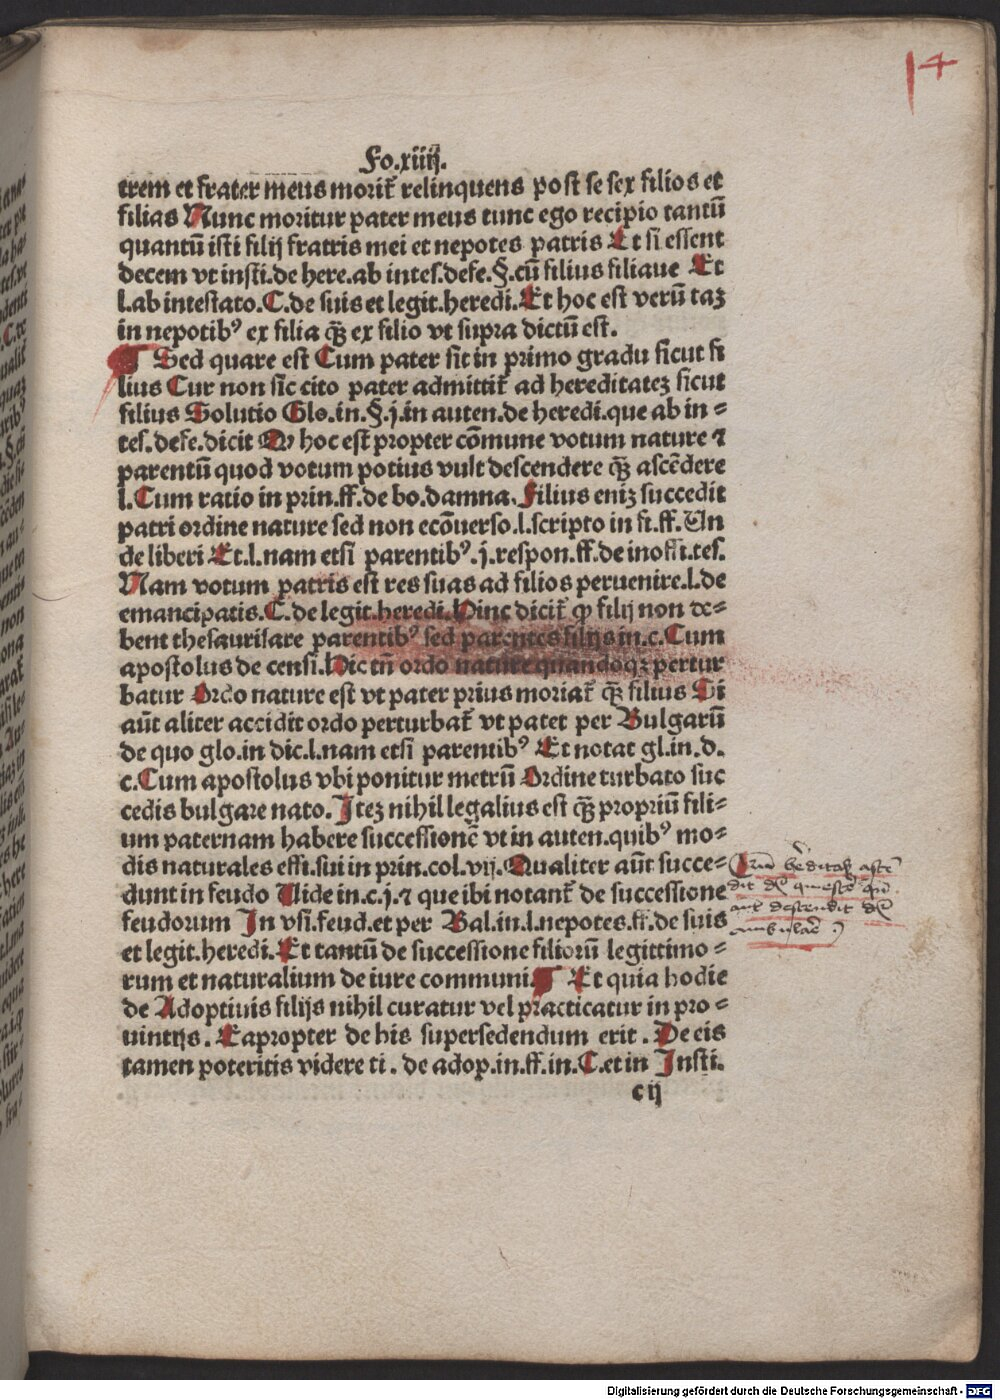 14
Fo.xiiij.
trem et frater meus morit᷑ relinquens post se sex filios et
filias Nunc moritur pater meus tunc ego recipio tantū
quantū isti filij fratris mei et nepotes patris Et si essent
decem vt insti.de here.ab intes.defe.§.cū filius filiaue Et
l.ab intestato.C.de suis et legit.heredi.Et hoc est verū taꝫ
in nepotibꝰ ex filia qꝫ̄ ex filio vt supra dictū est.
¶ Sed quare est Cum pater sit in primo gradu sicut fi
lius Cur non sic cito pater admittit᷑ ad hereditateꝫ sicut
filius Solutio Glo.in.§.j.in auten.de heredi.que ab in=
tes.defe.dicit Ꝙ hoc est propter cōmune votum nature ⁊
parentū quod votum potius vult descendere qꝫ̄ ascēdere
l.Cum ratio in prin.ff.de bo.damna.Filius eniꝫ succedit
patri ordine nature sed non ecōuerso.l.scripto in fi.ff.Un
de liberi Et.l.nam etsi parentibꝰ.j.respon.ff.de inoffi.tes.
Nam votum patris est res suas ad filios peruenire.l.de
emancipatis.C.de legit.heredi.Hinc dicit᷑ ꝙ filij non de=
bent thesaurisare parentibꝰ sed parentes filijs in.c.Cum
apostolus de censi.Hic tn̄ ordo nature quandoqꝫ pertur
batur Ordo nature est vt pater prius moriat᷑ qꝫ̄ filius Si
aūt aliter accidit ordo perturbat᷑ vt patet per Bulgarū
de quo glo.in dic.l.nam etsi parentibꝰ Et notat gl.in.d.
c.Cum apostolus vbi ponitur metrū Ordine turbato suc
cedis bulgare nato.Iteꝫ nihil legalius est qꝫ̄ propriū fili=
um paternam habere successionē vt in auten.quibꝰ mo=
dis naturales effi.sui in prin.col.vij.Qualiter aūt succe=
dunt in feudo Uide in.c.j.⁊ que ibi notant᷑ de successione
feudorum In vsi.feud.et per Bal.in.l.nepotes.ff.de suis
et legit.heredi.Et tantū de successione filiorū legittimo=
rum et naturalium de iure communi ¶ Et quia hodie
de Adoptiuis filijs nihil curatur vel practicatur in pro=
uintijs. Eapropter de his supersedendum erit. De eis
tamen poteritis videre ti. de adop.in.ff.in.C.et in Insti.
c ij
Digitalisierung gefördert durch die Deutsche Forschungsgemeinschaft - DFG